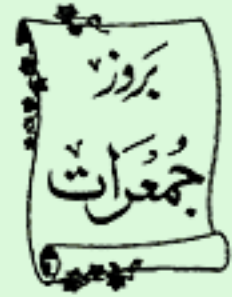 بَروز
جُمُعرَات